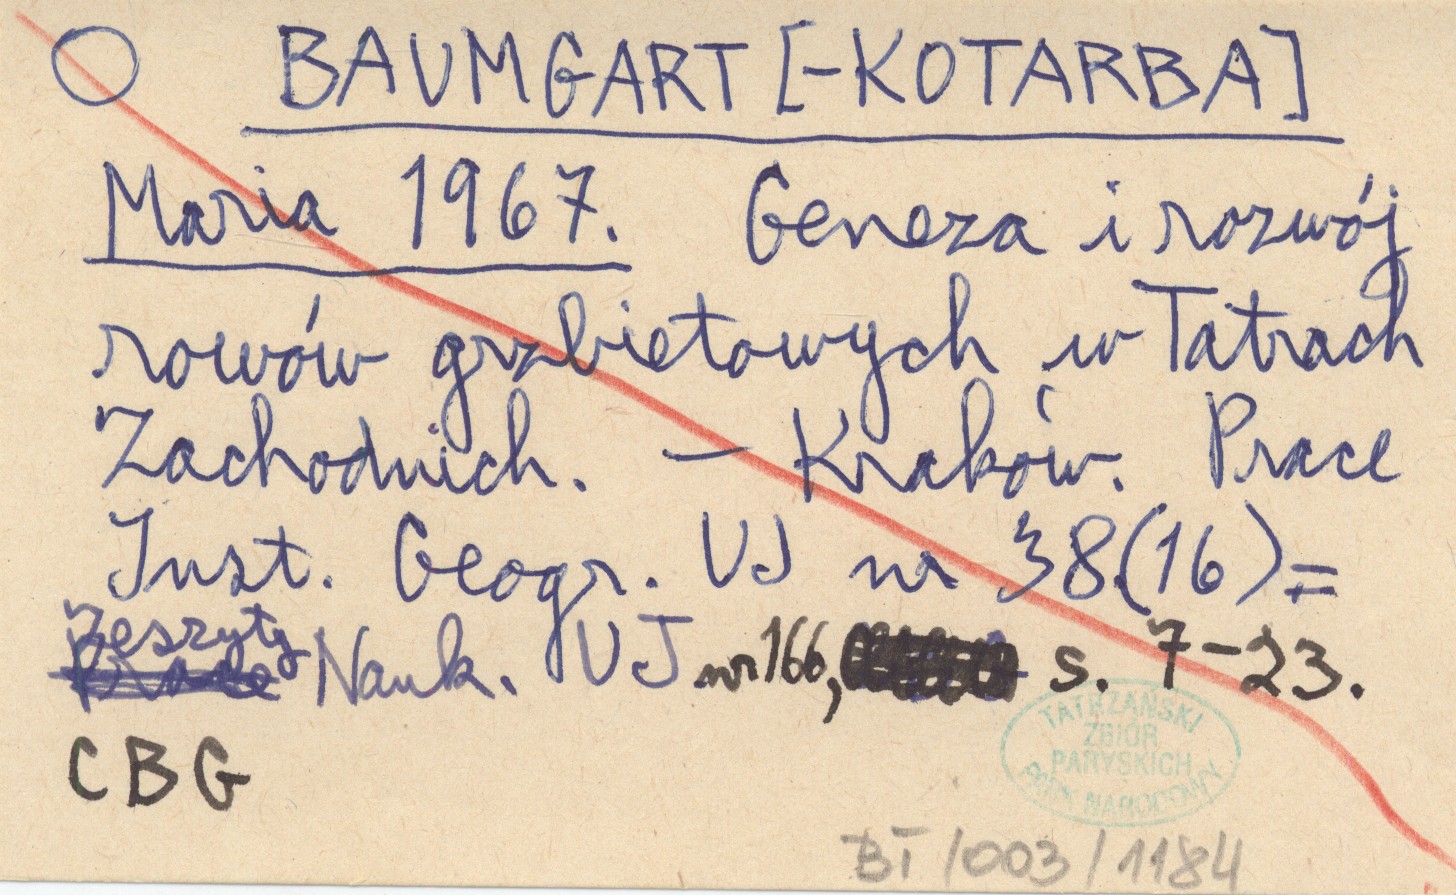 BAUMGART [-KOTARBA]
Maria 1967. Geneza i rozwój
rowów grzbietowych w Tatrach
Zachodnich. — Kraków. Prace
Inst. Geogr. UJ nr 38(16)=
Zeszyty Nauk. UJ nr 166, s. 7-23.
CBG
TATRZAŃSKI
ZBIÓR
PARYSKICH
PARK NARODOWY
BT/003/1184